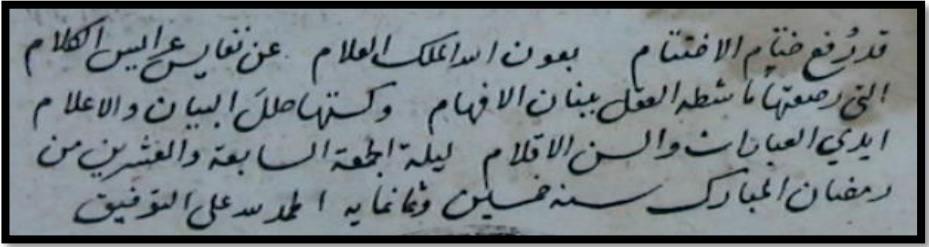 قد رُفع ختام الاختتام بعون الله الملك العلام عن نفايس عرايس الكلام
التي رصعتها ماشطه العقل ببنان الافهام وكستها حللَ البيان والاعلام
ايدي العبارات والسن الاقلام ليلة الجمعة السابعة والعشرين من
رمضان المبارك سنه خمسين وثمانمايه الحمد لله على التوفيق